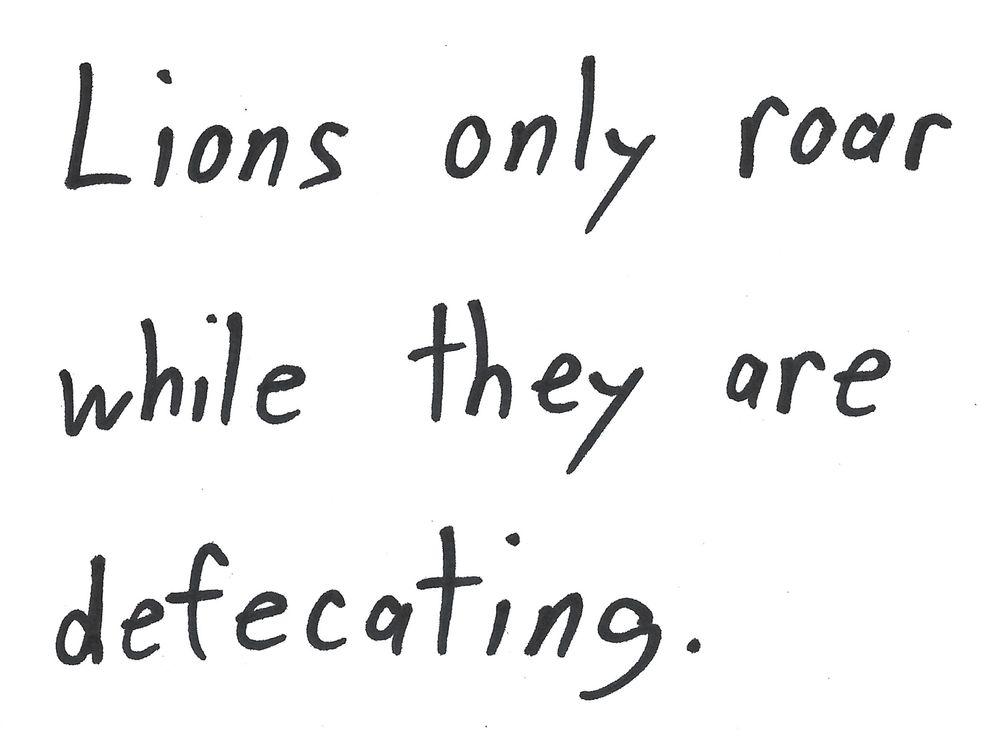 Lions only roar
while they are
defecating.